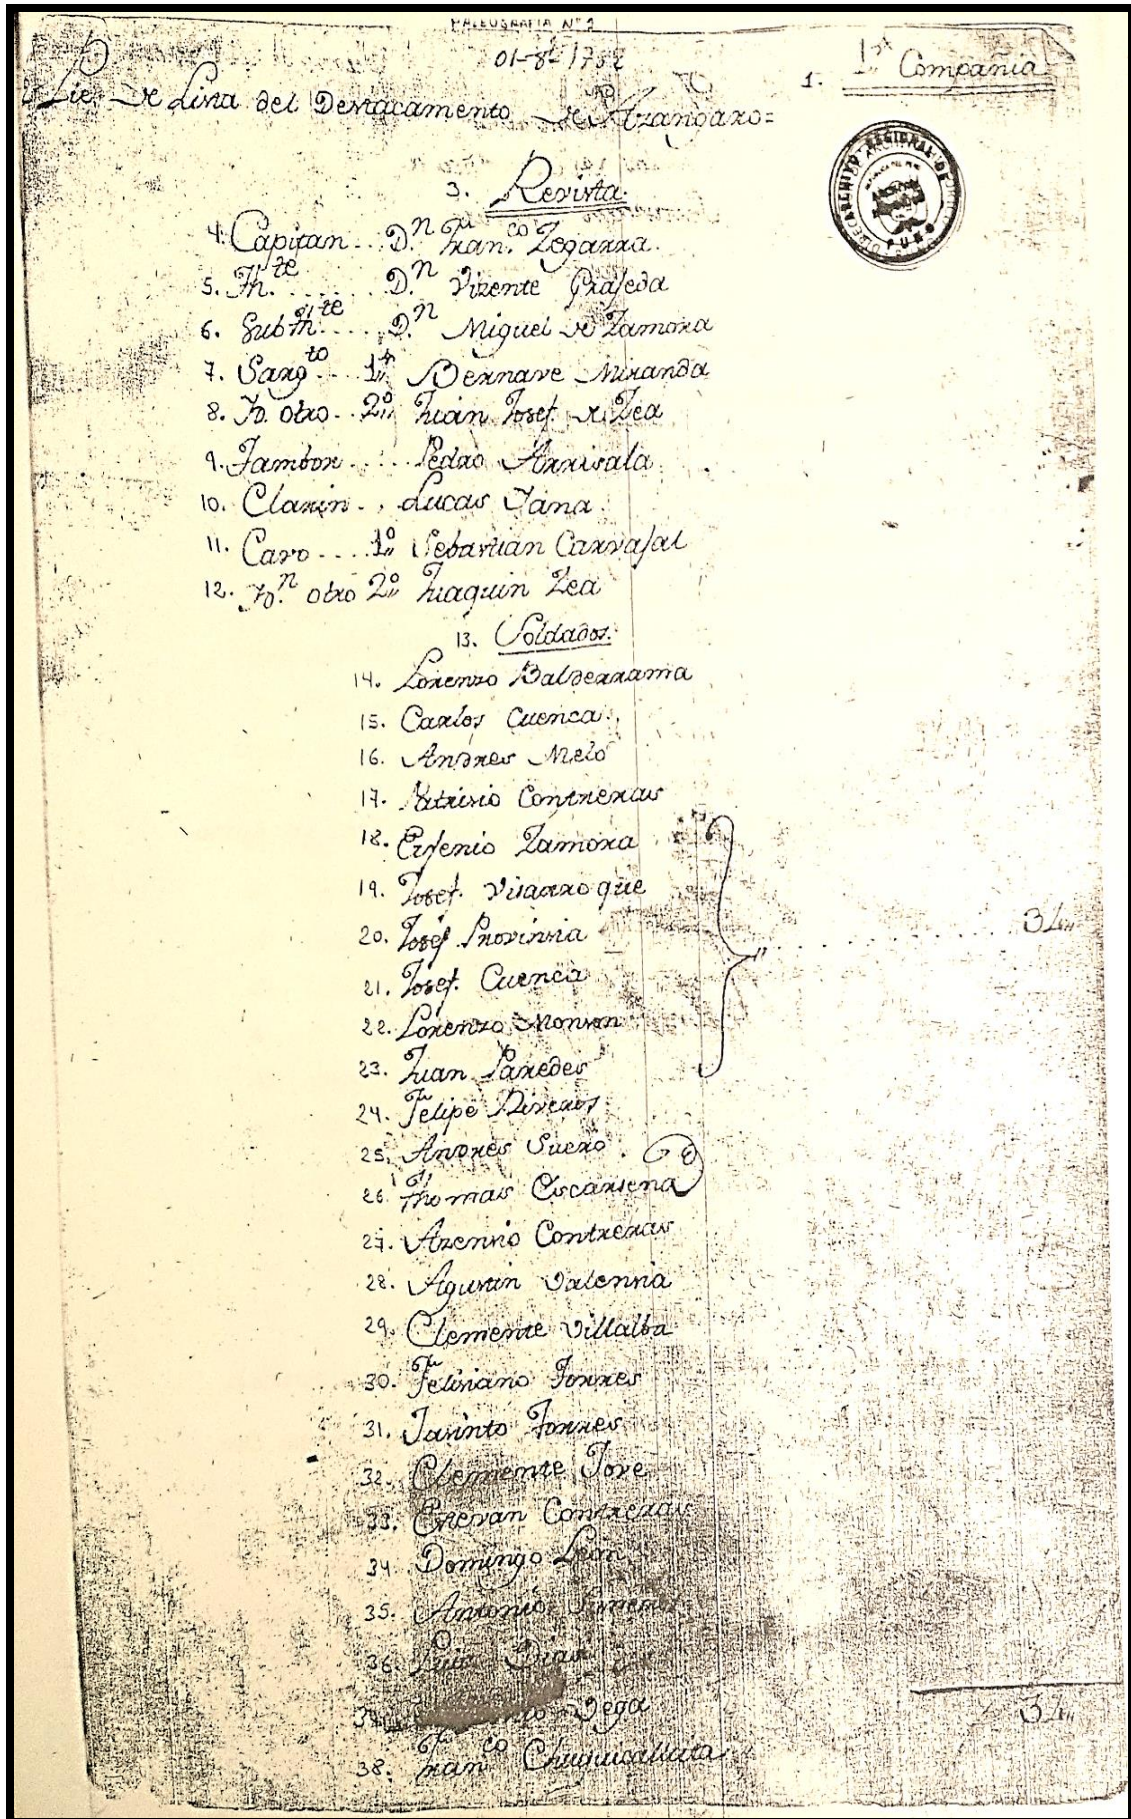 PALEOGRAFIA Nº 2
01-8-1782
1. 1ª Compañia
2. Pie de Lista del Destacamento de Azangaro=
ARCHIVO REGIONAL DE PUNO
3. Revista.
4. Capitan... D.n Fran.co Zegarra.
5. Th.te ...... D.n Vizente Grajeda
6. Subth.te .... D.n Miguel de Zamora
7. Sarg.to ... 1º Bernave Miranda
8. Yd. otro.. 2º Juan Josef de Zea
9. Tambor ...... Pedro Arrisala
10. Clarin . , Lucas Yana.
11. Cavo .... 1º Sebastian Carvajal
12. Yd.n otro 2º Juaquin Zea
13. Soldados.
14. Lorenzo Balderrama
15. Carlos Cuenca.
16. Andres Melo
17. Patrisio Contreras
18. Eujenio Zamora
19. Josef. Visarroque
20. Josef Provinsia
............ 34
21. Josef. Cuenca
22. Lorenzo Monson
23. Juan Paredes
24. Felipe Riveros.
25. Andres Suero.
26. Thomas Escarsena
27. Azensio Contreras
28. Agustin Valensia
29. Clemente Villalba
30. Felisiano Torres
31. Jasinto Torres
32. Clemente Jove
33. Estevan Contreras
34. Domingo Leon
35. Antonio
36. Dias
37. Vega
34
38. Fran.co Chuquicallata